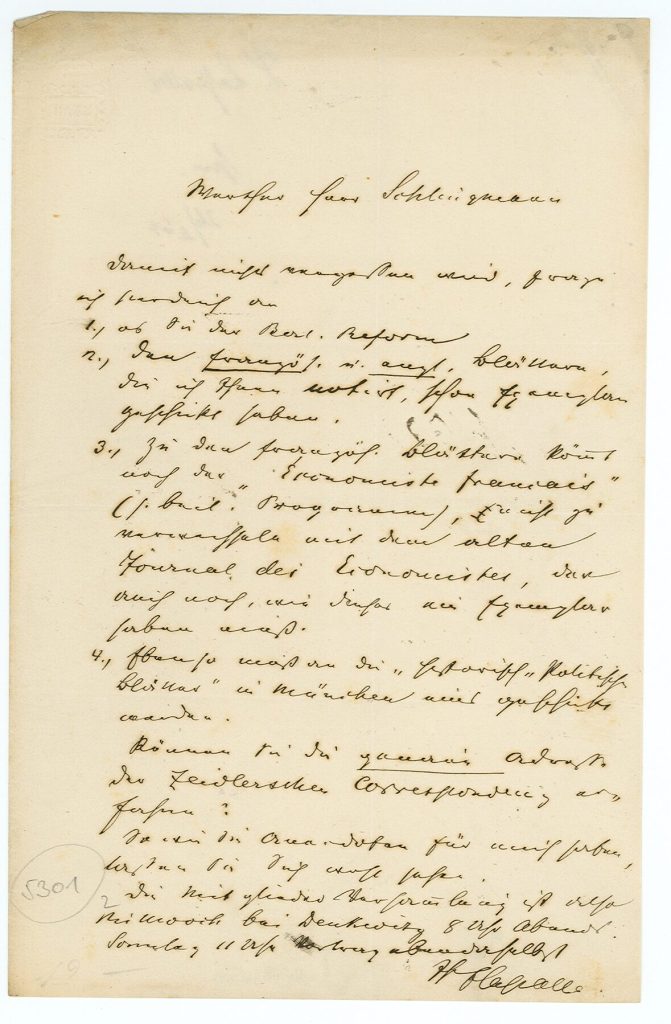 Werther Herr Schlingmann
damit nichts vergessen wird, frage
ich hierdurch an
1., ob Sie der Berl. Reform
2., den französ. u. engl. Blättern,
die ich Ihnen notirt, schon Exemplare
geschickt haben.
3., Zu den französ. Blättern kömt
noch der „Economiste français"
(s. beil. Programm), nicht zu
verwechseln mit dem alten
Journal des Economistes, das
auch noch, wie dieser ein Exemplar
haben muß.
4., Ebenso muß an die „historisch-Politischen
Blätter" in München eins geschickt
werden.
Können Sie die genauere Adresse
der Zeidlerschen Correspondenz er-
fahren?
So wie Sie für mich haben,
lassen Sie Sich wohl sehen.
Die Mitglieder Versammlung ist also
Mittwoch bei 8 Uhr Abends
Sonntag 11 Uhr Vortrag ebenderselbst
FLassalle.
5301
2